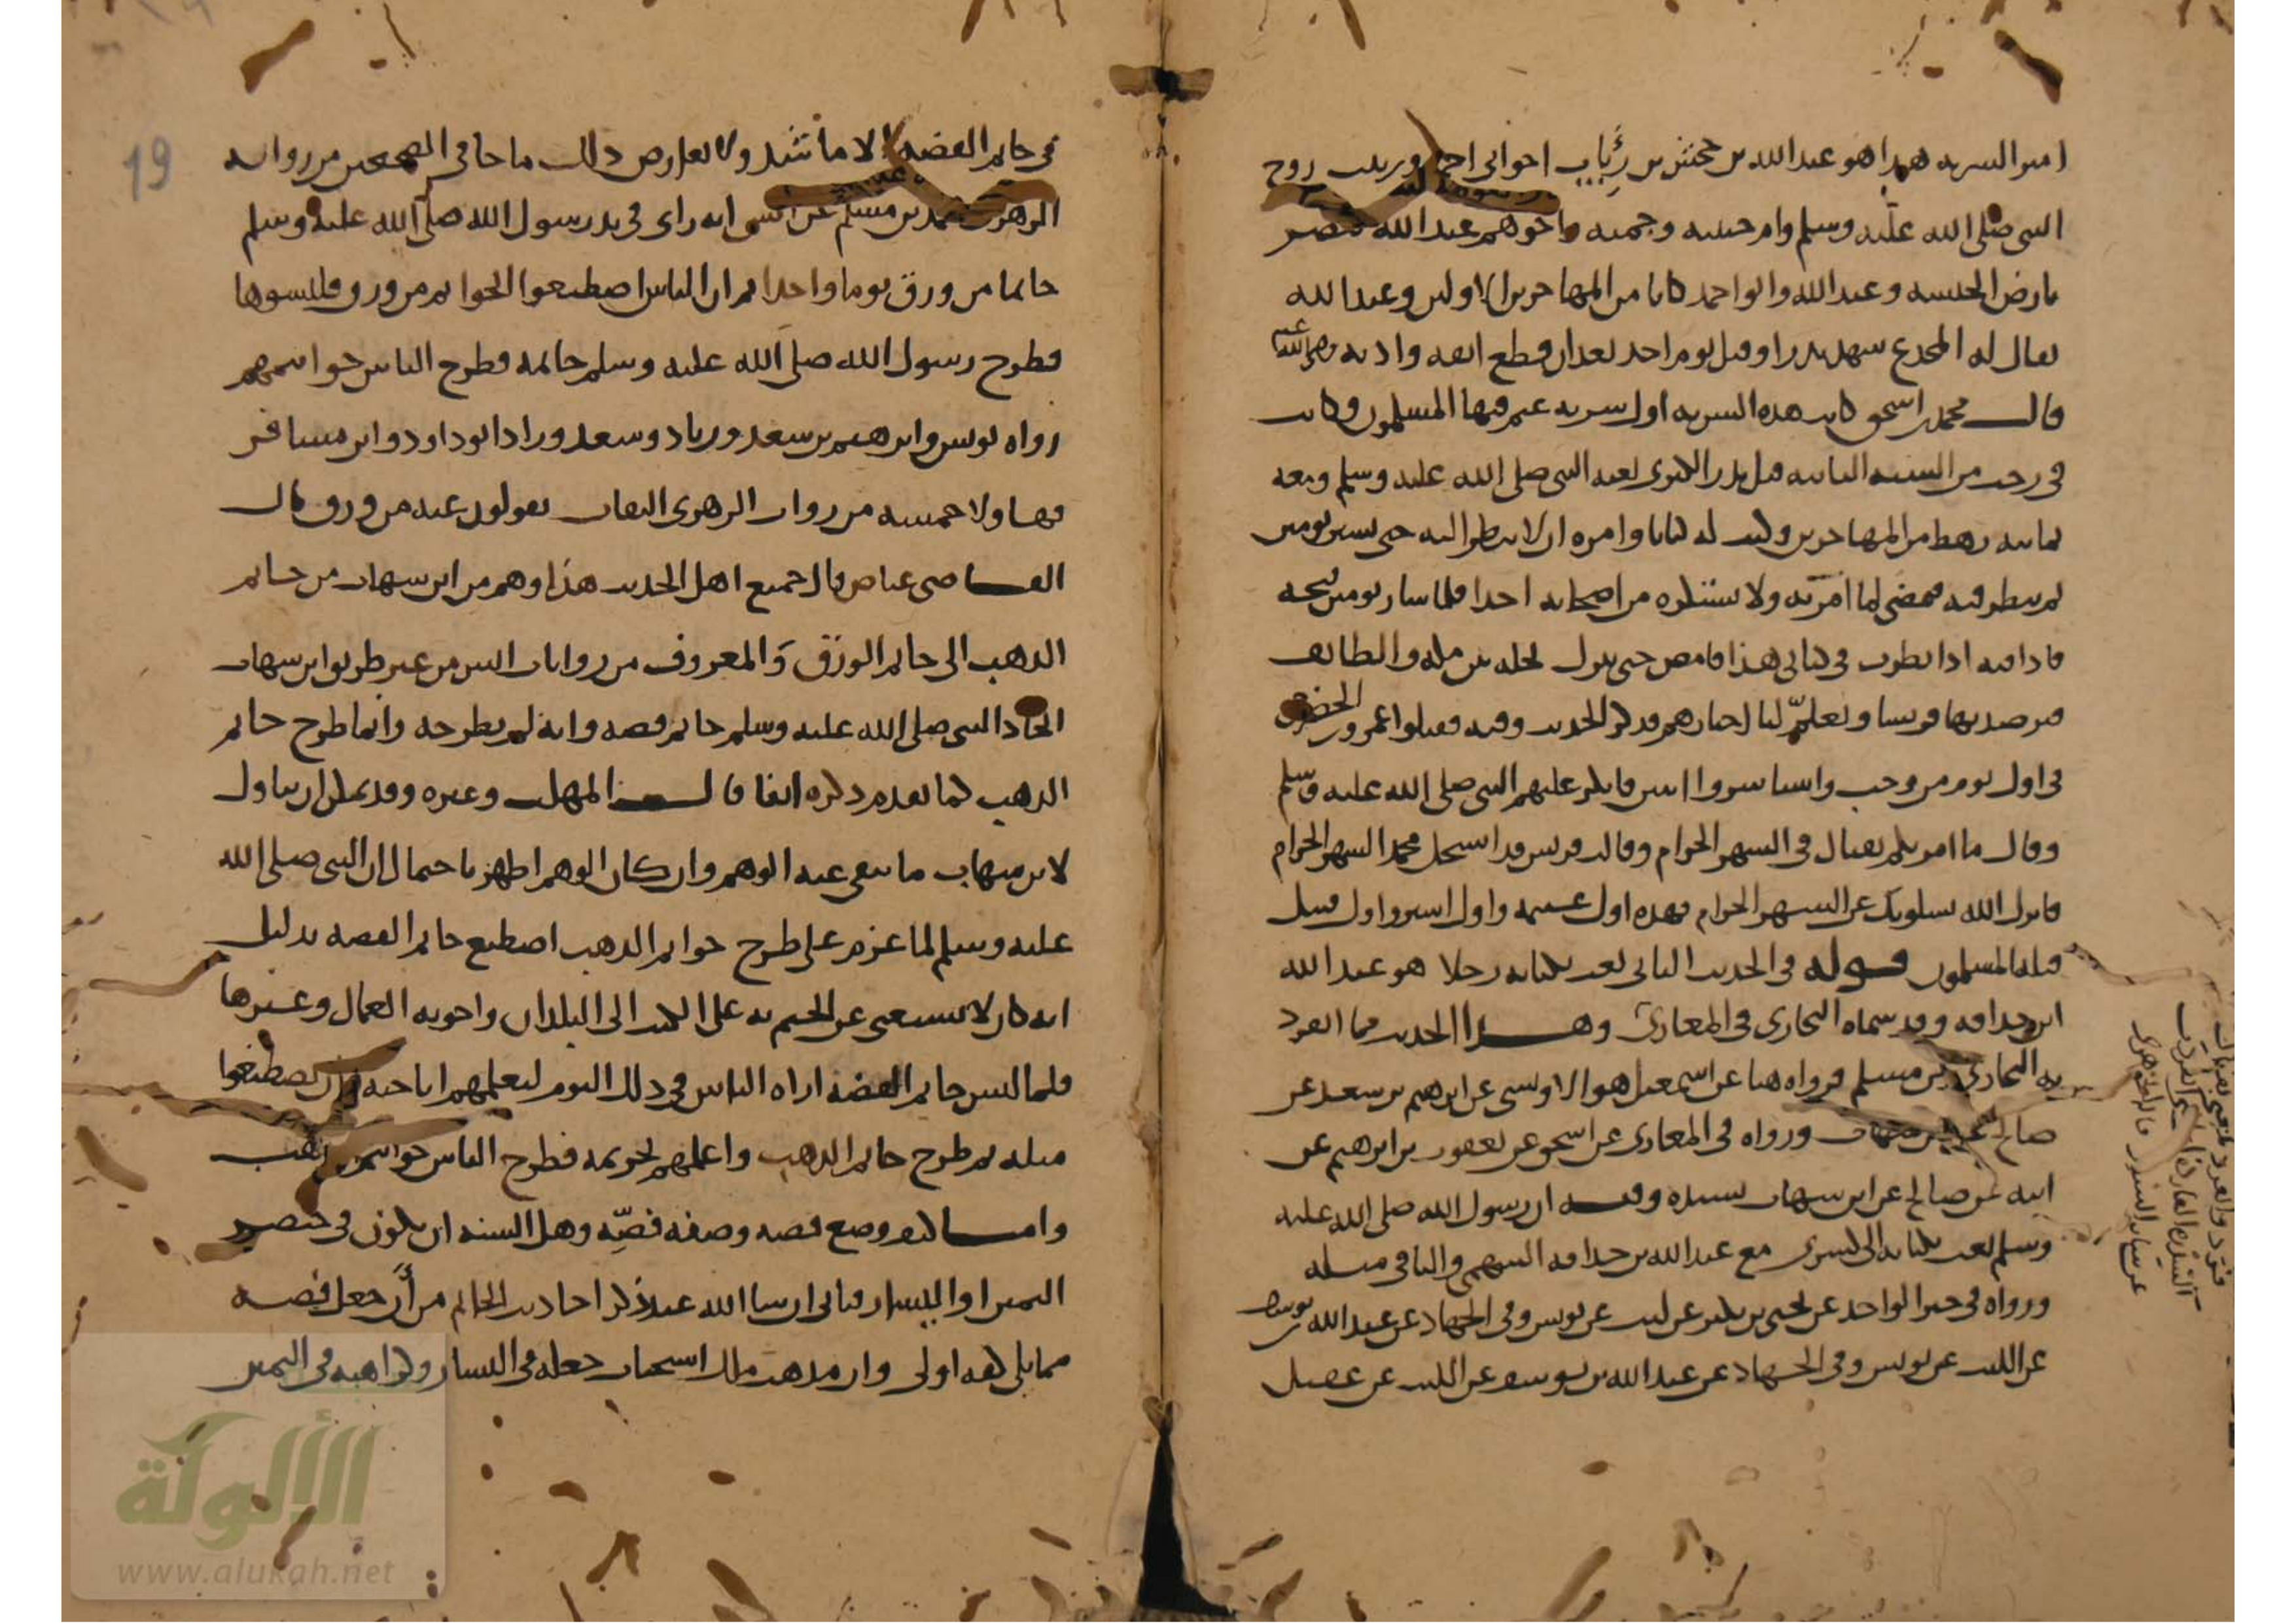 امير السرية هذا هو عبد الله بن جحش بن رِئاب اخو ابي احمد وزينب زوج
النبي صلى الله عليه وسلم وام حبيبة وحمنة واخوهم عبيد الله تنصر
بارض الحبشة وعبد الله وابو احمد كانا من المهاجرين الاولين وعبد الله
يقال له المجدع شهد بدرا وقتل يوم احد بعد ان قطع انفه واذنه رضي الله عنه
قال محمد بن اسحق كانت هذه السرية اول سرية غنم فيها المسلمون وكانت
في رجب من السنة الثانية قبل بدر الكبرى بعثه النبي صلى الله عليه وسلم ومعه
ثمانية رهط من المهاجرين وكتب له كتابا وامره ان لا ينظر اليه حتى يسير يومين
ثم ينظر فيه فيمضي لما امر به ولا يستكره من اصحابه احدا فلما سار يومين فتحه
فاذا فيه اذا نظرت في كتابي هذا فامض حتى تنزل نخلة بين مكة والطائف
فترصد بها قريشا وتعلّم لنا اخبارهم فذكر الحديث وفيه فقتلوا عمرو بن الحضرمي
في اول يوم من رجب واستاسروا اثنين فانكر عليهم النبي صلى الله عليه وسلم
وقال ما امرتكم بقتال في الشهر الحرام وقالت قريش قد استحل محمد الشهر الحرام
فانزل الله يسلونك عن الشهر الحرام فهذه اول غنيمة واول اسير واول قتيل
قتله المسلمون قوله في الحديث الثاني بعث بكتابه رجلا هو عبد الله
ابن حذافة وقد سماه البخاري في المغازي وهذا الحديث مما انفرد
به البخاري عن مسلم فرواه هنا عن اسمعيل هو الاويسي عن ابرهيم بن سعد عن
صالح عن ابن شهاب ورواه في المغازي عن اسحق عن يعقوب بن ابرهيم عن
ابيه عن صالح عن ابن شهاب بسنده وفيه ان رسول الله صلى الله عليه
وسلم بعث بكتابه الى كسرى مع عبد الله بن حذافة السهمي والباقي مثله
ورواه في خبر الواحد عن يحيى بن بكير عن ليث عن يونس وفي الجهاد عن عبد الله بن يوسف
عن الليث عن يونس وفي الجهاد عن عبد الله بن يوسف عن الليث عن عقيل
في خاتم الفضة الا ما شذ ولا يعارض ذلك ما جا في الصحيحين من رواية
الزهري محمد بن مسلم عن انس انه راى في يد رسول الله صلى الله عليه وسلم
خاتما من ورق يوما واحدا ثم ان الناس اصطنعوا الخواتم من ورق فلبسوها
فطرح رسول الله صلى الله عليه وسلم خاتمه فطرح الناس خواتيمهم
رواه يونس وابرهيم بن سعد وزياد وسعد وزاد ابو داود وابن مسافر
فهاولا خمسة من رواة الزهري الثقات يقولون عنه من ورق قال
القاضي عياض قال جميع اهل الحديث هذا وهم من ابن شهاب من خاتم
الذهب الى خاتم الورق وَالمعروف من روايات انس من غير طريق ابن شهاب
اتخاذ النبي صلى الله عليه وسلم خاتم فضة وانه لم يطرحه وانما طرح خاتم
الذهب كما تقدم ذكره انفا قال المهلب وغيره وقد يمكن ان يتاول
لابن شهاب ما ينفي عنه الوهم وان كان الوهم اظهر باحتمال ان النبي صلى الله
عليه وسلم لما عزم على طرح خواتم الذهب اصطنع خاتم الفضة بدليل
انه كان لا يستغني عن الختم به على الكتب الى البلدان واجوبة العمال وغيرها
فلما لبس خاتم الفضة اراه الناس في ذلك اليوم ليعلمهم اباحته وان يصطنعوا
مثله ثم طرح خاتم الذهب واعلمهم تحريمه فطرح الناس خواتيم الذهب
واما وضع فصه وصفة فصّه وهل السنة ان يكون في خنصر
اليمين او اليسار فياتي ان شا الله عند ذكر احاديث الخاتم من أن جعل فصه
مما يلي كفه اولى وان مذهب مالك استحباب جعله في اليسار وكراهيه في اليمين
19
الألوكة
www.alukah.net